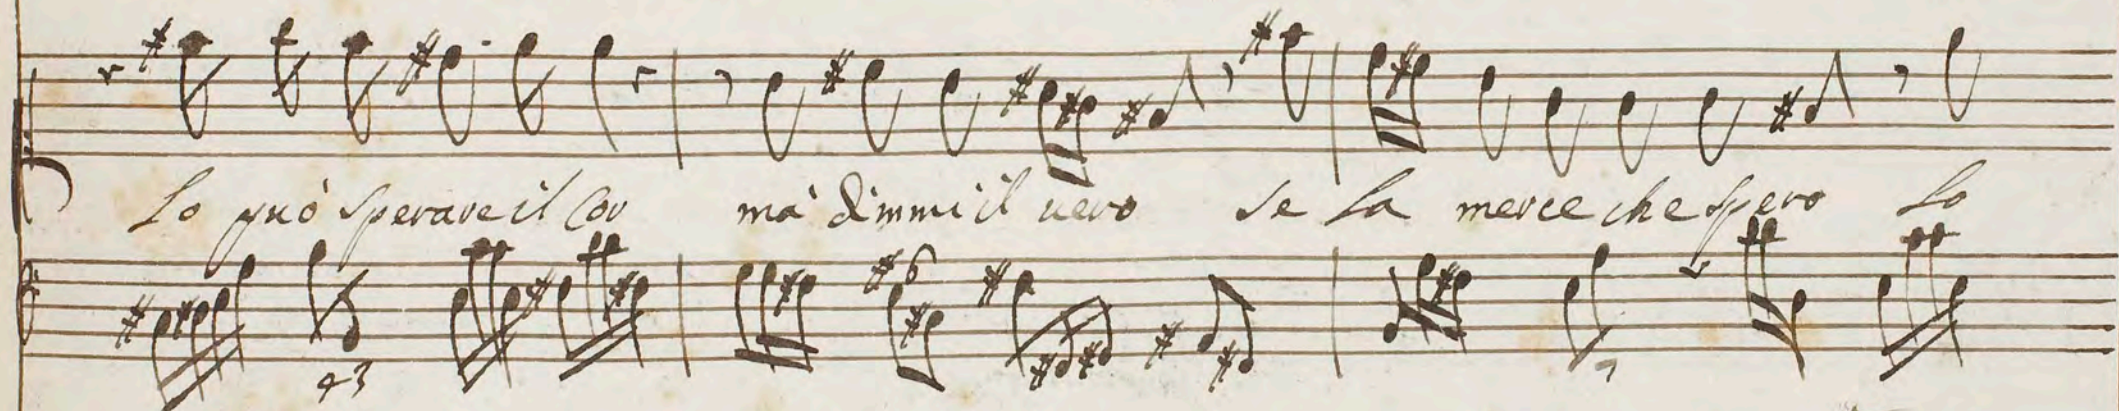 Lo può sperare il Cor ma dimmi il uero se la merce che spero lo
6
43
7